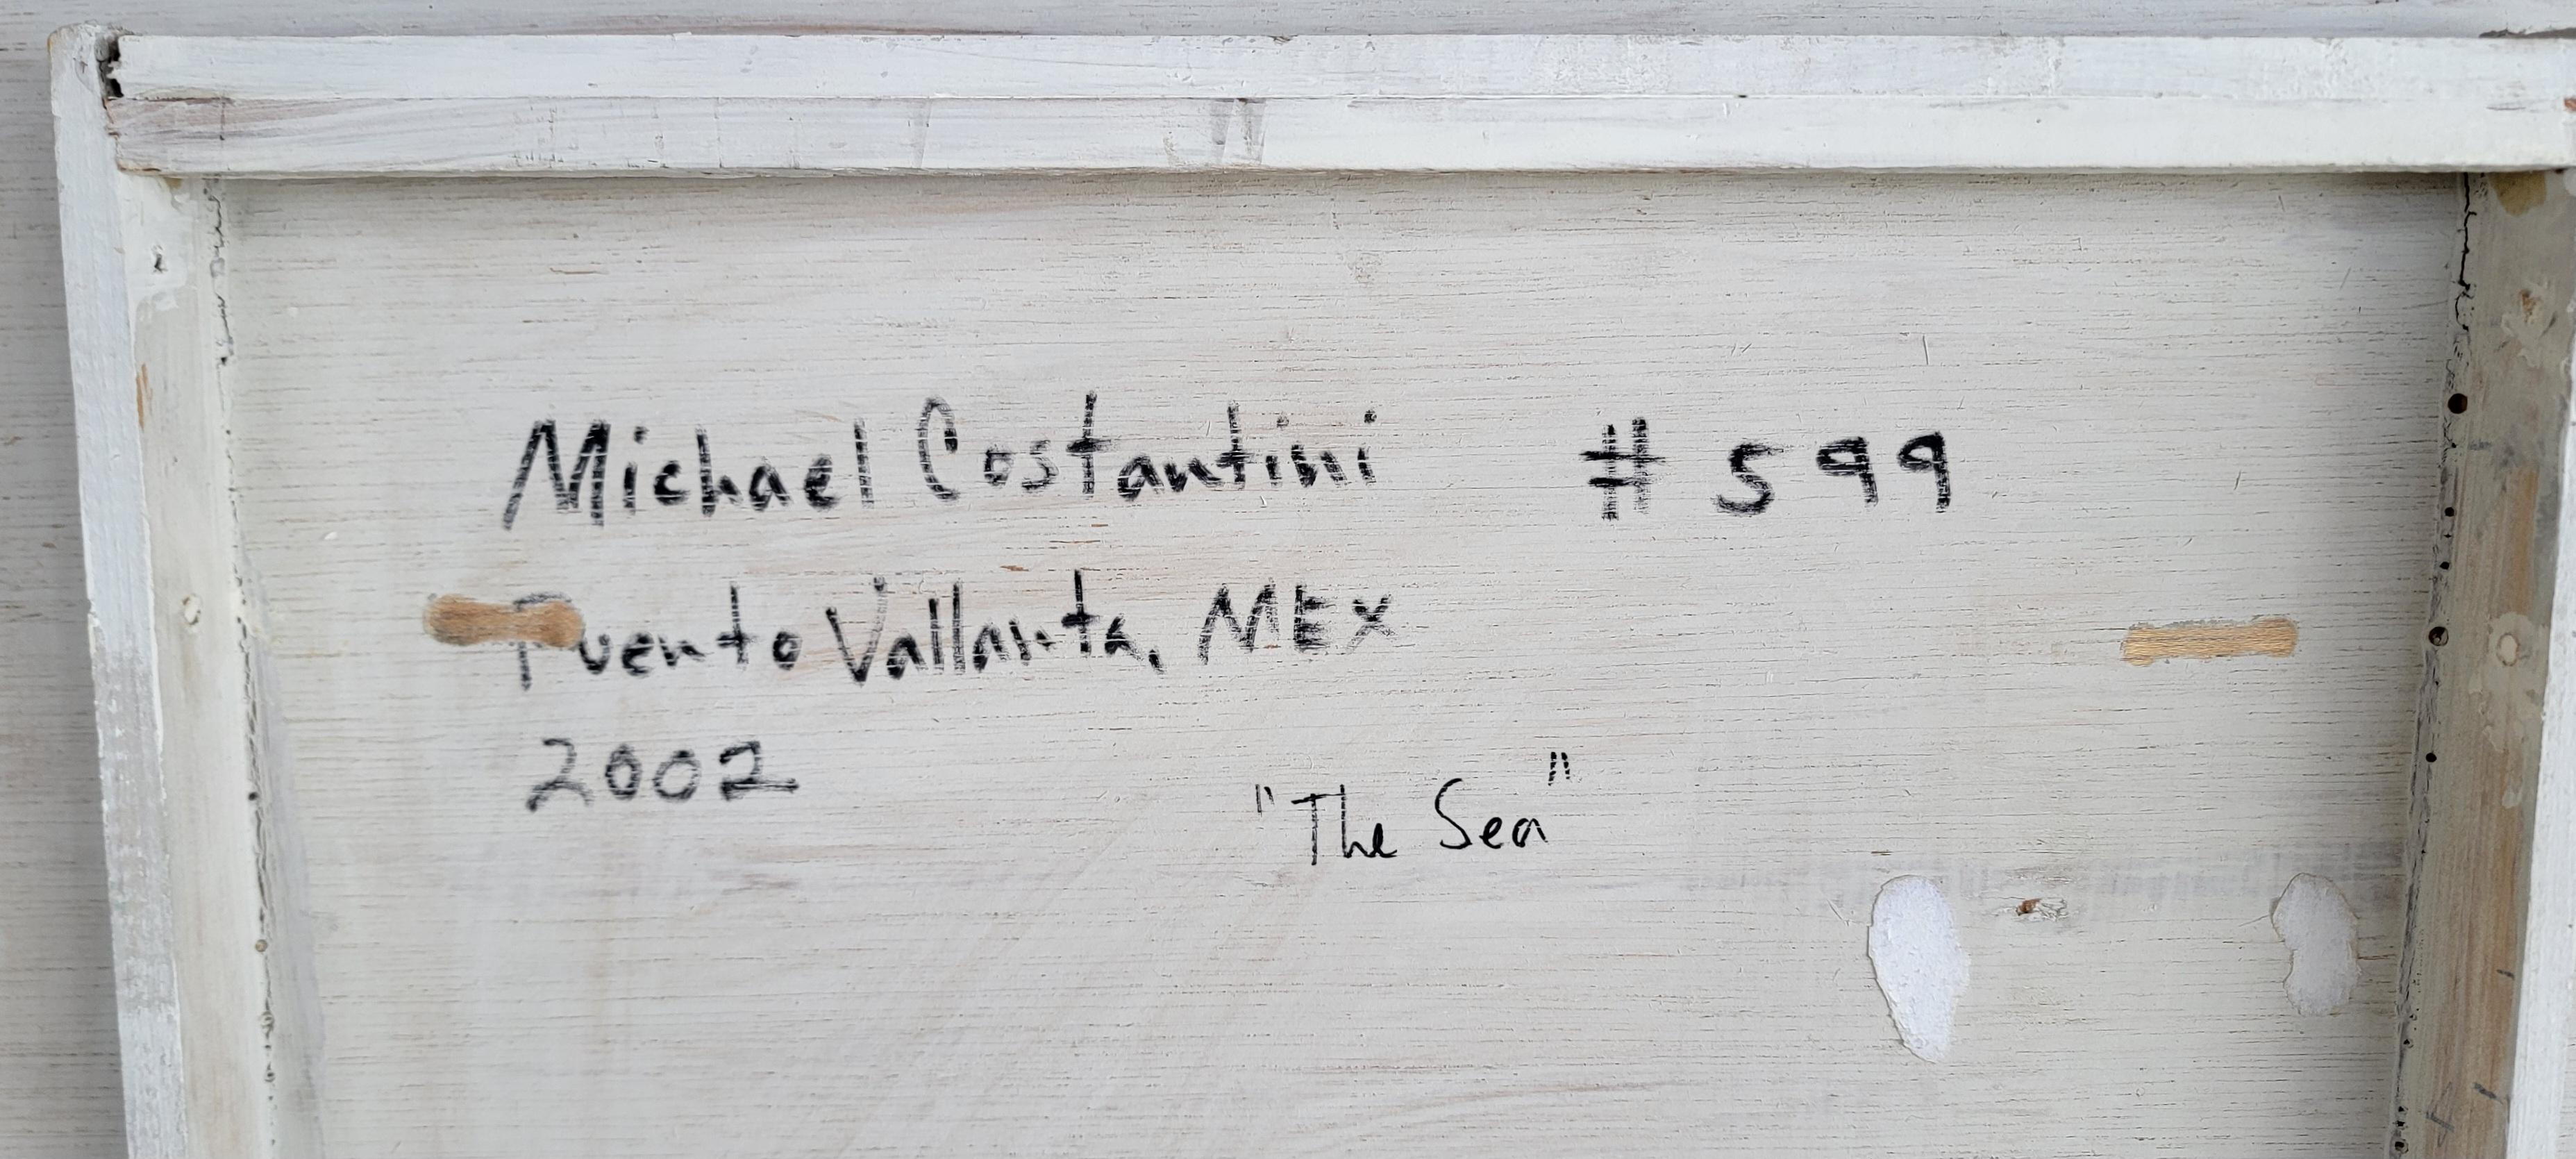 Michael Costantini # 599
Puerto Vallarta, MEX
2002
"The Sea"